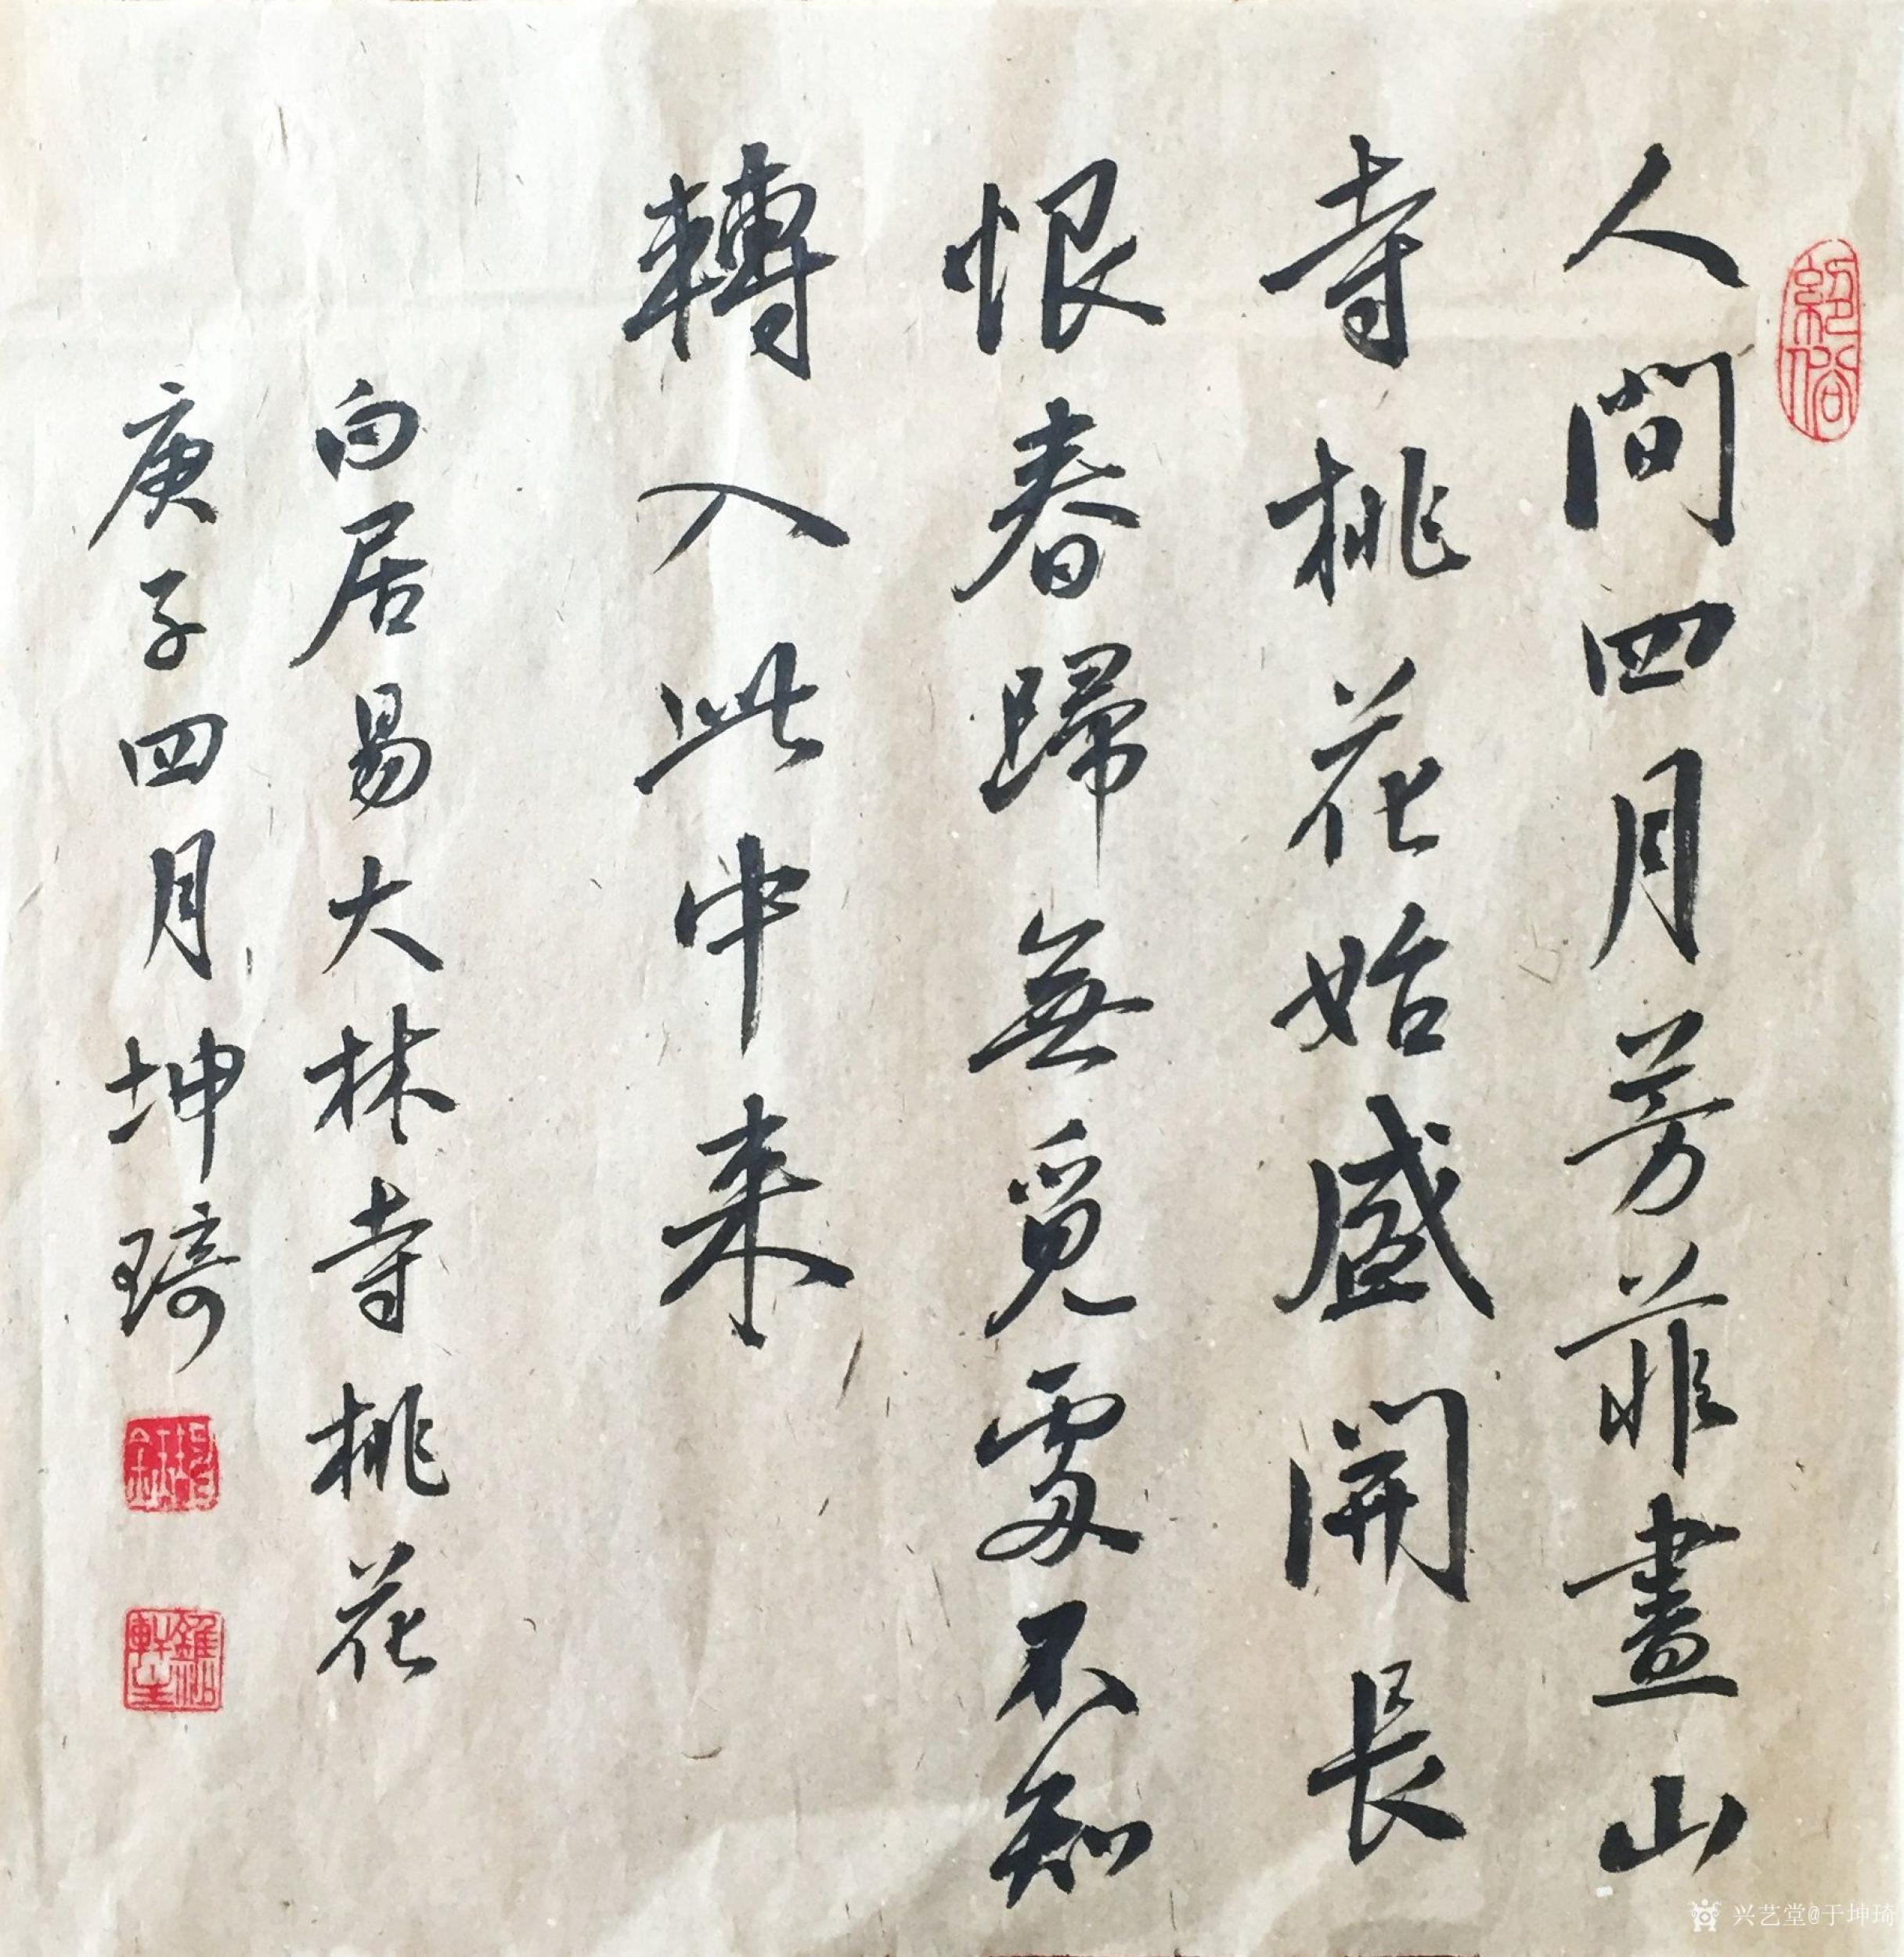 人間四月芳菲盡山
寺桃花始盛開長
恨春歸無覓處不知
轉入此中来
白居易大林寺桃花
庚子四月坤琦
絕俗
兴艺堂@于坤琦